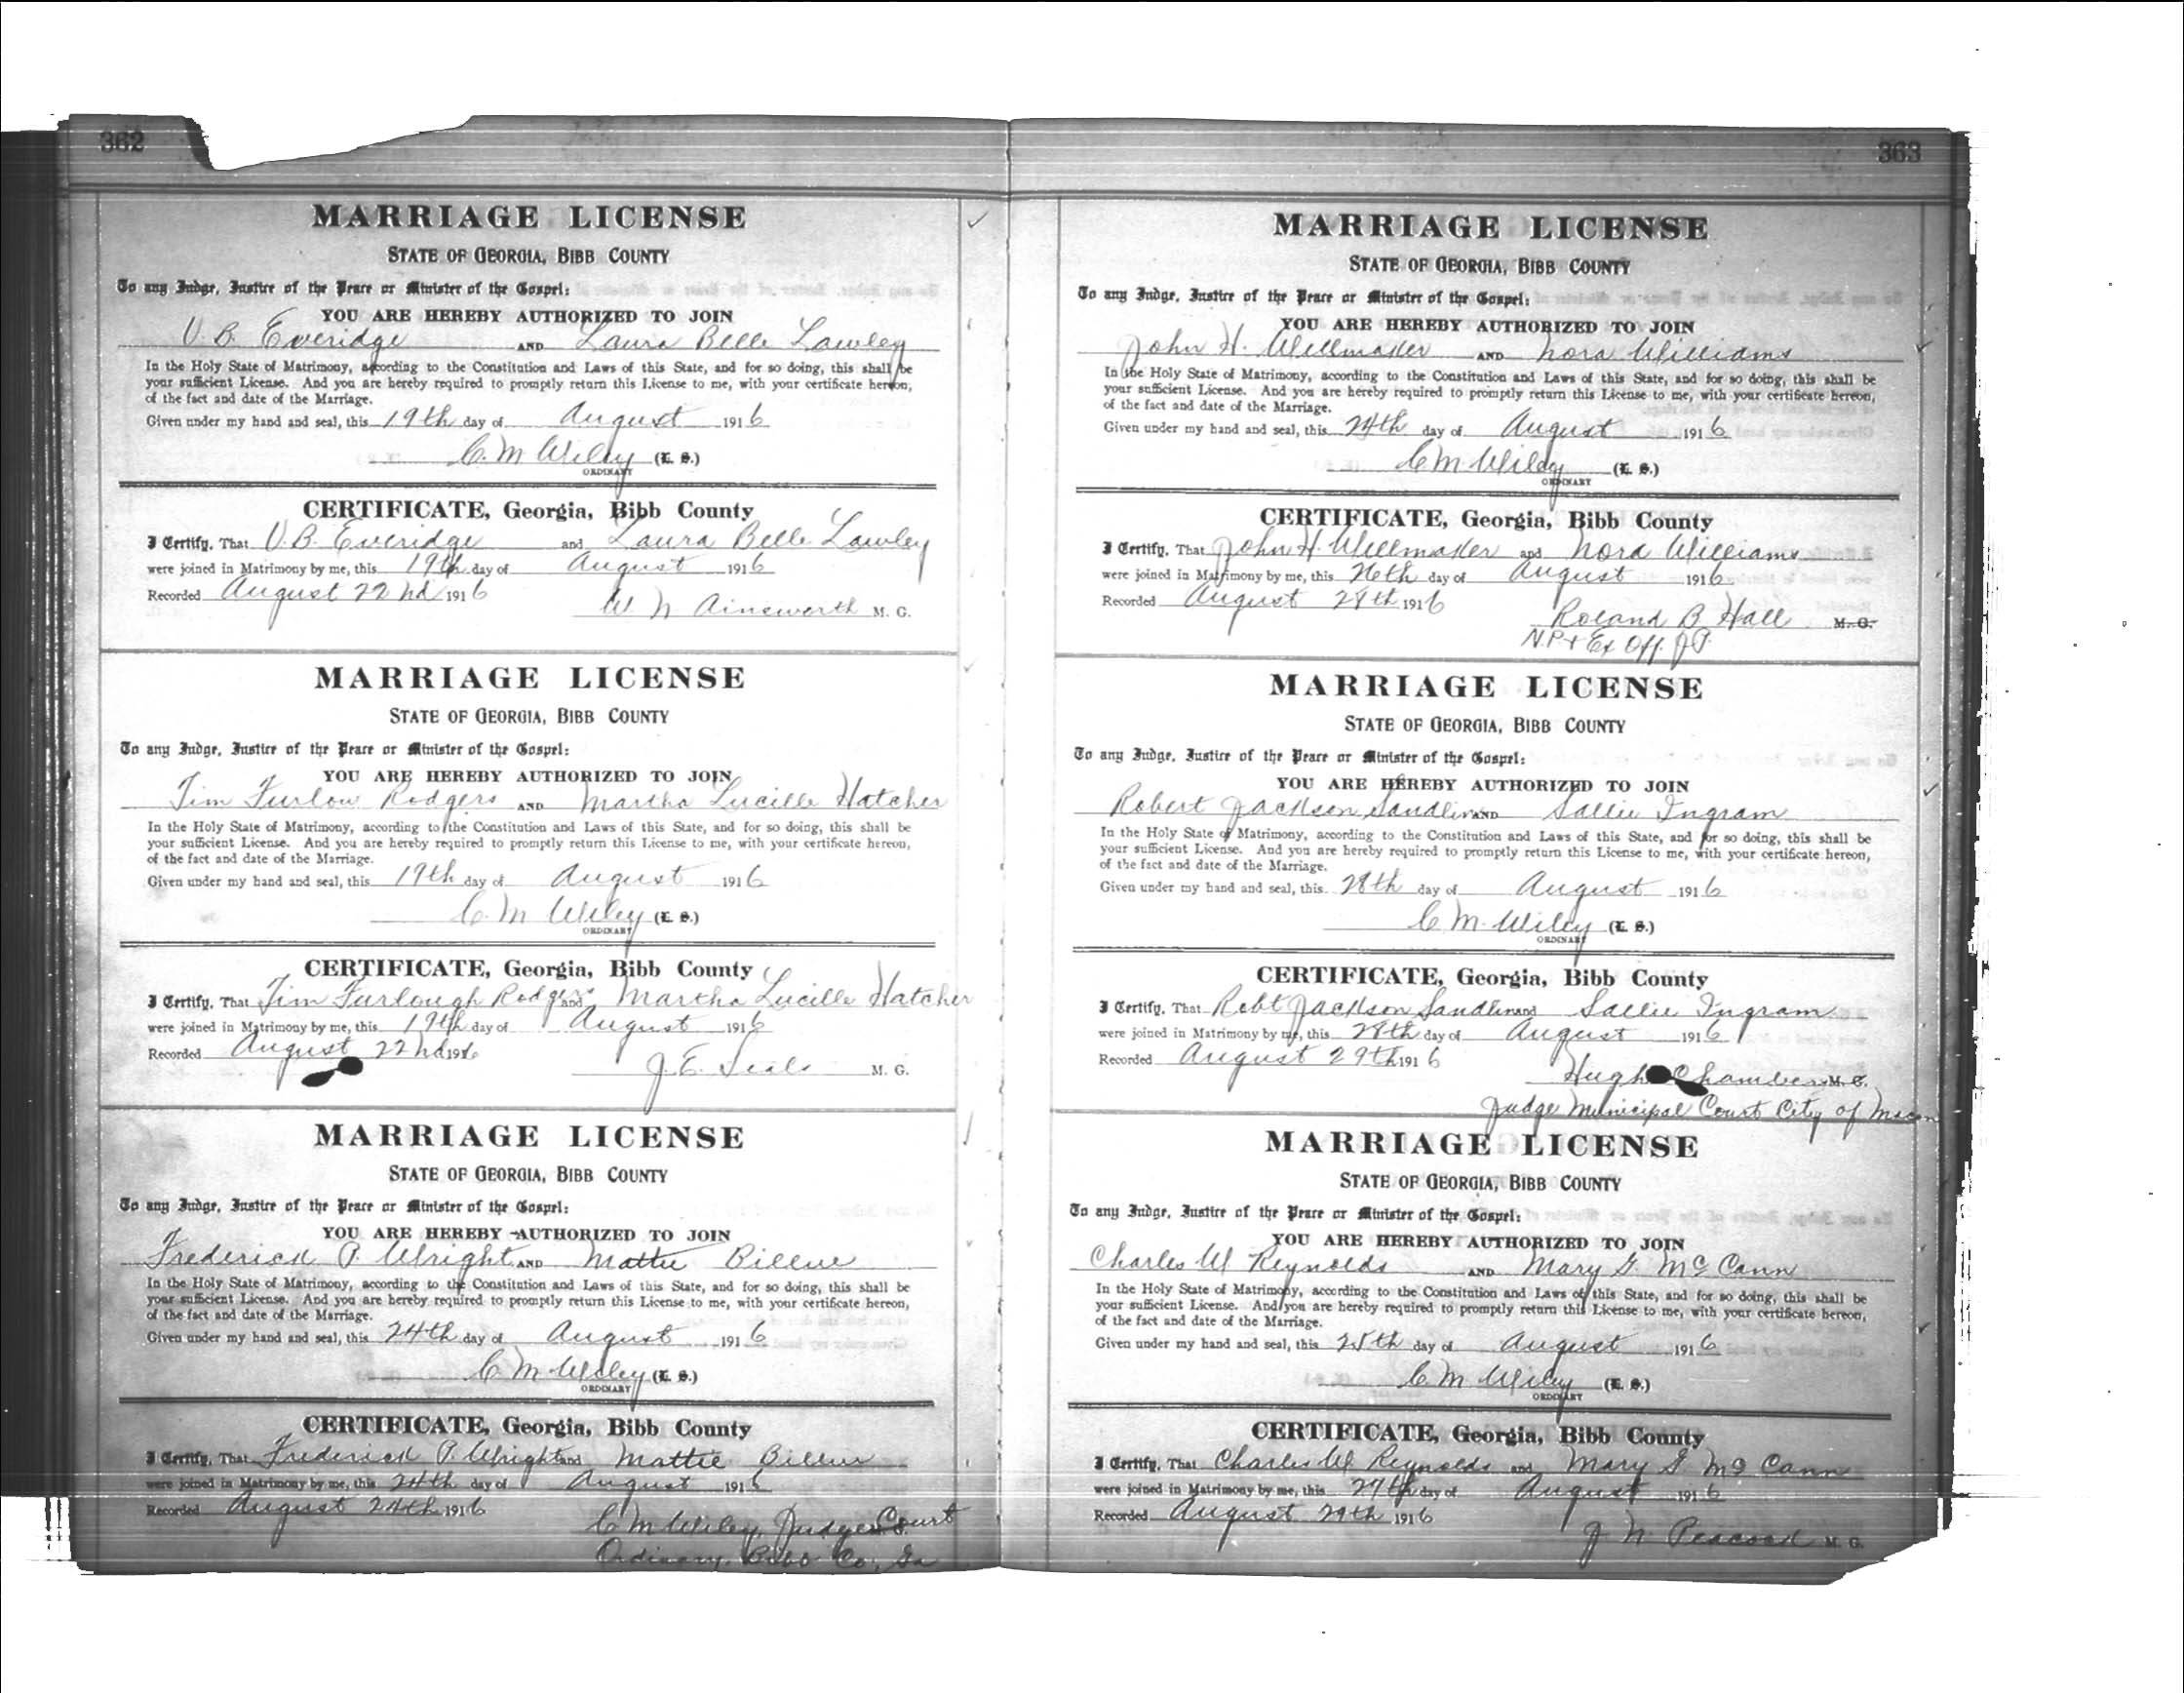 362
MARRIAGE LICENSE
STATE OF GEORGIA, BIBB COUNTY
To any Judge, Justice of the Peace or Minister of the Gospel:
YOU ARE HEREBY AUTHORIZED TO JOIN
V. B. Everidge AND Laura Belle Lawley
In the Holy State of Matrimony, according to the Constitution and Laws of this State, and for so doing, this shall be
your sufficient License. And you are hereby required to promptly return this License to me, with your certificate hereon,
of the fact and date of the Marriage.
Given under my hand and seal, this 19th day of August 1916
C. M Wiley (L. S.)
ORDINARY
CERTIFICATE, Georgia, Bibb County
I Certify, That V. B. Everidge and Laura Belle Lawley
were joined in Matrimony by me, this 19th day of August 1916
Recorded August 22nd 1916
W N Ainsworth M. G.
MARRIAGE LICENSE
STATE OF GEORGIA, BIBB COUNTY
To any Judge, Justice of the Peace or Minister of the Gospel:
YOU ARE HEREBY AUTHORIZED TO JOIN
Tim Furlow Rodgers AND Martha Lucille Hatcher
In the Holy State of Matrimony, according to the Constitution and Laws of this State, and for so doing, this shall be
your sufficient License. And you are hereby required to promptly return this License to me, with your certificate hereon,
of the fact and date of the Marriage.
Given under my hand and seal, this 19th day of August 1916
C. M Wiley (L. S.)
ORDINARY
CERTIFICATE, Georgia, Bibb County
I Certify, That Tim Furlough Rodgers and Martha Lucille Hatcher
were joined in Matrimony by me, this 19th day of August 1916
Recorded August 22nd 1916
J. E. Seals M. G.
MARRIAGE LICENSE
STATE OF GEORGIA, BIBB COUNTY
To any Judge, Justice of the Peace or Minister of the Gospel:
YOU ARE HEREBY AUTHORIZED TO JOIN
Frederick P. Wright AND Mattie Billue
In the Holy State of Matrimony, according to the Constitution and Laws of this State, and for so doing, this shall be
your sufficient License. And you are hereby required to promptly return this License to me, with your certificate hereon,
of the fact and date of the Marriage.
Given under my hand and seal, this 24th day of August 1916
C M Wiley (L. S.)
ORDINARY
CERTIFICATE, Georgia, Bibb County
I Certify, That Frederick P. Wright and Mattie Billue
were joined in Matrimony by me, this 24th day of August 1916
Recorded August 24th 1916
C M Wiley, Judge Court
Ordinary, Bibb Co, Ga
363
MARRIAGE LICENSE
STATE OF GEORGIA, BIBB COUNTY
To any Judge, Justice of the Peace or Minister of the Gospel:
YOU ARE HEREBY AUTHORIZED TO JOIN
John H. Wellmaker AND Nora Williams
In the Holy State of Matrimony, according to the Constitution and Laws of this State, and for so doing, this shall be
your sufficient License. And you are hereby required to promptly return this License to me, with your certificate hereon,
of the fact and date of the Marriage.
Given under my hand and seal, this 24th day of August 1916
C M. Wiley (L. S.)
ORDINARY
CERTIFICATE, Georgia, Bibb County
I Certify, That John H. Wellmaker and Nora Williams
were joined in Matrimony by me, this 26th day of August 1916
Recorded August 28th 1916
Roland B Hall M. G.
N.P. + Ex Off. J P.
MARRIAGE LICENSE
STATE OF GEORGIA, BIBB COUNTY
To any Judge, Justice of the Peace or Minister of the Gospel:
YOU ARE HEREBY AUTHORIZED TO JOIN
Robert Jackson Sandlin AND Sallie Ingram
In the Holy State of Matrimony, according to the Constitution and Laws of this State, and for so doing, this shall be
your sufficient License. And you are hereby required to promptly return this License to me, with your certificate hereon,
of the fact and date of the Marriage.
Given under my hand and seal, this 28th day of August 1916
C M. Wiley (L. S.)
ORDINARY
CERTIFICATE, Georgia, Bibb County
I Certify, That Robt Jackson Sandlin and Sallie Ingram
were joined in Matrimony by me, this 28th day of August 1916
Recorded August 29th 1916
Hugh Chambers M. G.
Judge Municipal Court City of Macon
MARRIAGE LICENSE
STATE OF GEORGIA, BIBB COUNTY
To any Judge, Justice of the Peace or Minister of the Gospel:
YOU ARE HEREBY AUTHORIZED TO JOIN
Charles W Reynolds AND Mary G. McCann
In the Holy State of Matrimony, according to the Constitution and Laws of this State, and for so doing, this shall be
your sufficient License. And you are hereby required to promptly return this License to me, with your certificate hereon,
of the fact and date of the Marriage.
Given under my hand and seal, this 25th day of August 1916
C. M Wiley (L. S.)
ORDINARY
CERTIFICATE, Georgia, Bibb County
I Certify, That Charles W Reynolds and Mary G McCann
were joined in Matrimony by me, this 27th day of August 1916
Recorded August 29th 1916
J N. Peacock M. G.